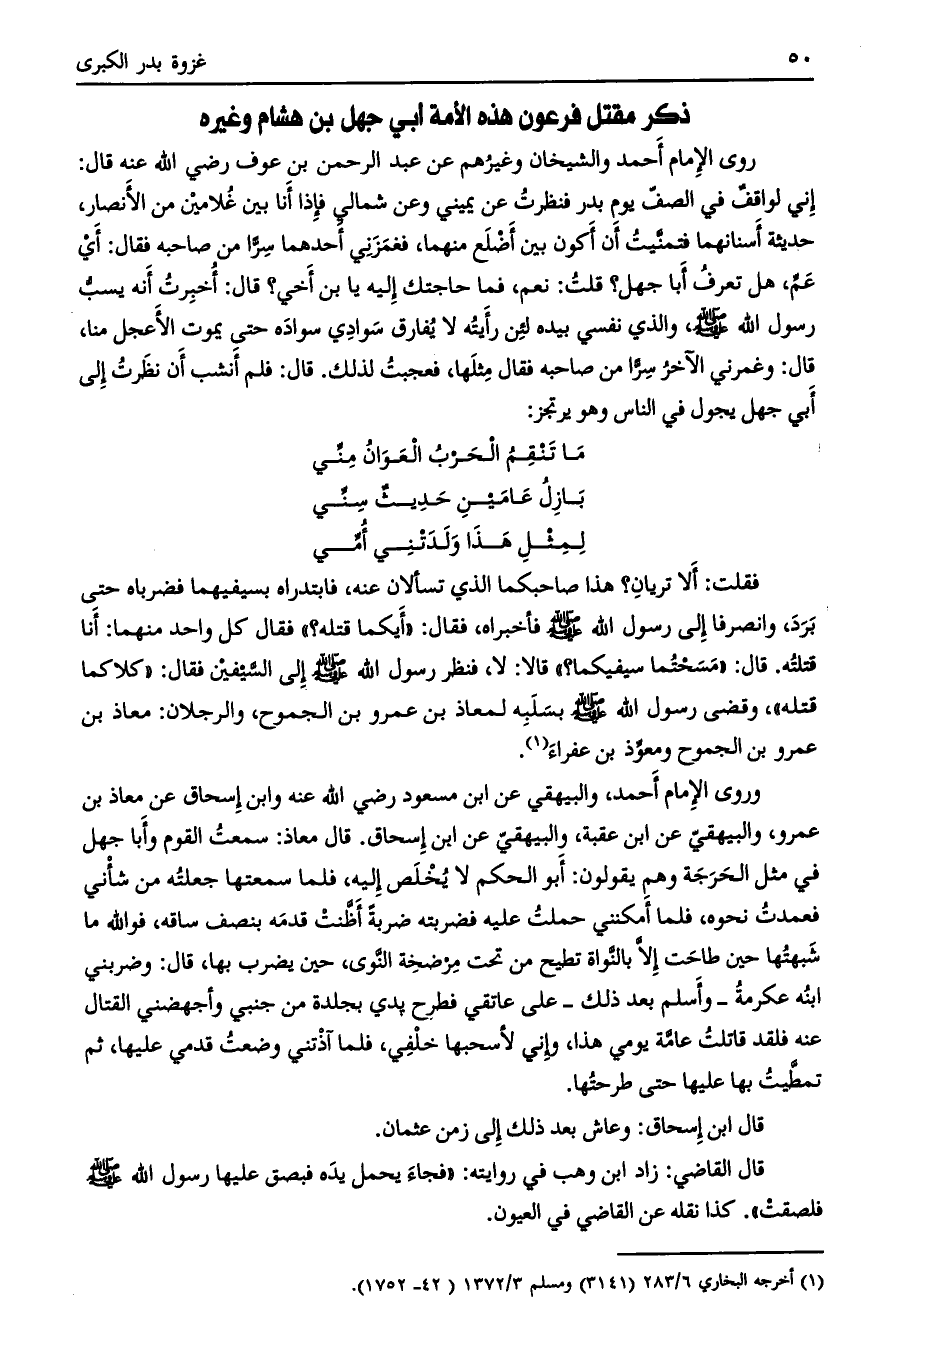 ٥٠ غزوة بدر الكبرى
ذكر مقتل فرعون هذه الأمة أبي جهل بن هشام وغيره
روى الإمام أَحمد والشيخان وغيرُهم عن عبد الرحمن بن عوف رضي الله عنه قال:
إني لواقفٌ في الصفّ يوم بدر فنظرتُ عن يميني وعن شمالي فإذا أَنا بين غُلامينْ من الأَنصار،
حديثة أَسنانهما فتمنَّيتُ أَن أَكون بين أَضْلَع منهما، فغمَزَنِي أَحدهما سِرًّا من صاحبه فقال: أَيْ
عَمِّ، هل تعرفُ أَبا جهل؟ قلتُ: نعم، فما حاجتك إليه يا بن أَخي؟ قال: أُخبِرتُ أَنه يسبُّ
رسول الله ﷺ، والذي نفسي بيده لئِن رأَيتُه لا يُفارق سَوادِي سوادَه حتى يموت الأَعجل منا،
قال: وغمرني الآخرُ سِرًّا من صاحبه فقال مِثلَها، فعجبتُ لذلك. قال: فلم أَنشب أَن نظَرتُ إلى
أَبي جهل يجول في الناس وهو يرتجز:
مَا تَنْقِمُ الْحَرْبُ الْعَوَانُ مِنِّي
بَازِلُ عَامَيْنِ حَدِيثٌ سِنِّي
لِمِثْلِ هَذَا وَلَدَتْنِي أُمِّي
فقلت: أَلا تريانِ؟ هذا صاحبكما الذي تسأَلان عنه، فابتدراه بسيفيهما فضرباه حتى
بَرَدَ، وانصرفا إلى رسول الله ﷺ فأَخبراه، فقال: «أَيكما قتله؟» فقال كل واحد منهما: أَنا
قتلتُه. قال: «مَسَحْتُما سيفيكما؟» قالا: لا، فنظر رسول الله ﷺ إلى السَّيْفينْ فقال: «كلاكما
قتله»، وقضى رسول الله ﷺ بسَلَبِه لمعاذ بن عمرو بن الجموح، والرجلان: معاذ بن
عمرو بن الجموح ومعوِّذ بن عفراءَ(١).
وروى الإمام أَحمد، والبيهقي عن ابن مسعود رضي الله عنه وابن إسحاق عن معاذ بن
عمرو، والبيهقيّ عن ابن عقبة، والبيهقيّ عن ابن إسحاق. قال معاذ: سمعتُ القوم وأَبا جهل
في مثل الحَرَجَة وهم يقولون: أَبو الحكم لا يُخْلَص إليه، فلما سمعتها جعلتُه من شأْني
فعمدتُ نحوه، فلما أَمكنني حملتُ عليه فضربته ضربةً أَطَّنتْ قدمَه بنصف ساقه، فوالله ما
شَبهتُها حين طاحَت إلاَّ بالنَّواة تطيح من تحت مِرْضخِة النَّوى، حين يضرب بها، قال: وضربني
ابنُه عكرمةُ ـ وأَسلم بعد ذلك ـ على عاتقي فطرح يدي بجلدة من جنبي وأجهضني القتال
عنه فلقد قاتلتُ عامَّة يومي هذا، وإني لأسحبها خلْفِي، فلما آذْتني وضعتُ قدمي عليها، ثم
تمطَّيتُ بها عليها حتى طرحتُها.
قال ابن إسحاق: وعاش بعد ذلك إلى زمن عثمان.
قال القاضي: زاد ابن وهب في روايته: «فجاءَ يحمل يدَه فبصق عليها رسول الله ﷺ
فلصقتْ». كذا نقله عن القاضي في العيون.
(١) أخرجه البخاري ٢٨٣/٦ (٣١٤١) ومسلم ١٣٧٢/٣ (٤٢ـ ١٧٥٢).